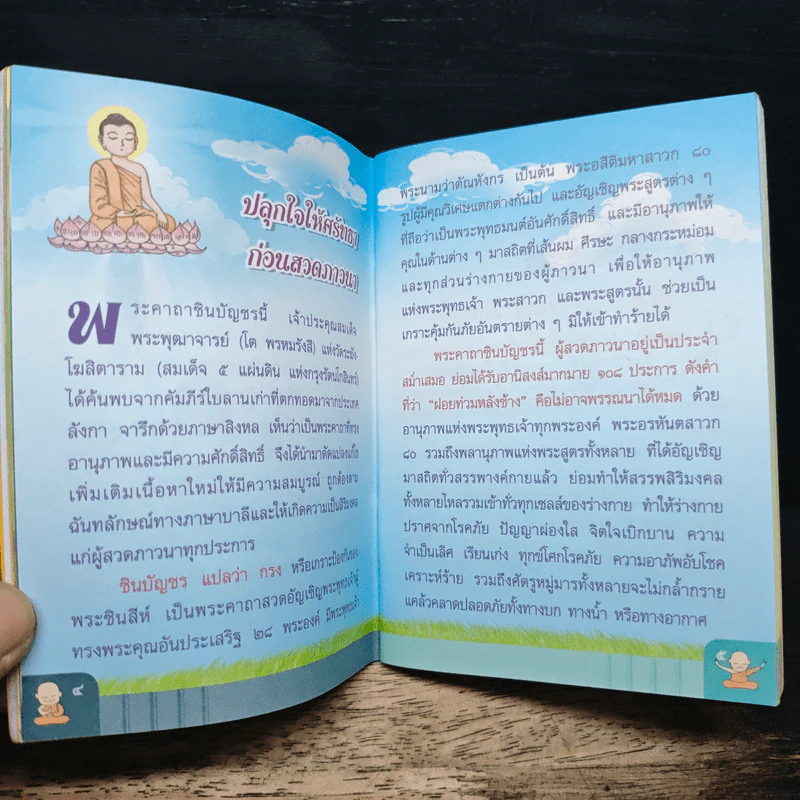 ปลุกใจให้ศรัทธา
ก่อนสวดภาวนา
พระคาถาชินบัญชรนี้ เจ้าประคุณสมเด็จ
พระพุฒาจารย์ (โต พรหมรังสี) แห่งวัดระฆัง-
โฆสิตาราม (สมเด็จ ๕ แผ่นดิน แห่งกรุงรัตนโกสินทร์)
ได้ค้นพบจากคัมภีร์ใบลานเก่าที่ตกทอดมาจากประเทศ
ลังกา จารึกด้วยภาษาสิงหล เห็นว่าเป็นพระคาถาที่ทรง
อานุภาพและมีความศักดิ์สิทธิ์ จึงได้นำมาดัดแปลงแก้ไข
เพิ่มเติมเนื้อหาใหม่ให้มีความสมบูรณ์ ถูกต้องตาม
ฉันทลักษณ์ทางภาษาบาลีและให้เกิดความเป็นสิริมงคล
แก่ผู้สวดภาวนาทุกประการ
ชินบัญชร แปลว่า กรง หรือเกราะป้องกันของ
พระชินสีห์ เป็นพระคาถาสวดอัญเชิญพระพุทธเจ้าผู้
ทรงพระคุณอันประเสริฐ ๒๘ พระองค์ มีพระพุทธเจ้า
๔
พระนามว่าตัณหังกร เป็นต้น พระอสีติมหาสาวก ๘๐
รูปผู้มีคุณวิเศษแตกต่างกันไป และอัญเชิญพระสูตรต่าง ๆ
ที่ถือว่าเป็นพระพุทธมนต์อันศักดิ์สิทธิ์ และมีอานุภาพให้
คุณในด้านต่าง ๆ มาสถิตที่เส้นผม ศีรษะ กลางกระหม่อม
และทุกส่วนร่างกายของผู้ภาวนา เพื่อให้อานุภาพ
แห่งพระพุทธเจ้า พระสาวก และพระสูตรนั้น ช่วยเป็น
เกราะคุ้มกันภัยอันตรายต่าง ๆ มิให้เข้าทำร้ายได้
พระคาถาชินบัญชรนี้ ผู้สวดภาวนาอยู่เป็นประจำ
สม่ำเสมอ ย่อมได้รับอานิสงส์มากมาย ๑๐๘ ประการ ดังคำ
ที่ว่า “ฝอยท่วมหลังช้าง” คือไม่อาจพรรณนาได้หมด ด้วย
อานุภาพแห่งพระพุทธเจ้าทุกพระองค์ พระอรหันตสาวก
๘๐ รวมถึงพลานุภาพแห่งพระสูตรทั้งหลาย ที่ได้อัญเชิญ
มาสถิตทั่วสรรพางค์กายแล้ว ย่อมทำให้สรรพสิริมงคล
ทั้งหลายไหลรวมเข้าทั่วทุกเซลล์ของร่างกาย ทำให้ร่างกาย
ปราศจากโรคภัย ปัญญาผ่องใส จิตใจเบิกบาน ความ
จำเป็นเลิศ เรียนเก่ง ทุกข์โศกโรคภัย ความอาภัพอับโชค
เคราะห์ร้าย รวมถึงศัตรูหมู่มารทั้งหลายจะไม่กล้ำกราย
แคล้วคลาดปลอดภัยทั้งทางบก ทางน้ำ หรือทางอากาศ
๕